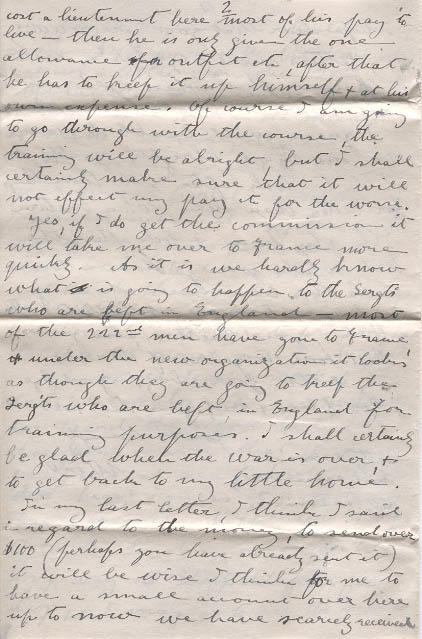 2
cost a lieutenant here most of his pay to
live – then he is only given the one
allowance for outfit etc, after that
he has to keep it up himself & at his
own expense. Of course I am going
to go through with the course, the
training will be alright, but I shall
certainly make sure that it will
not effect my pay etc for the worse.
Yes, if I do get the commission it
will take me over to France more
quickly. As it is we hardly know
what is going to happen to the Sergts
who are left in England – most
of the 222nd men have gone to France
& under the new organization it looks
as though they are going to keep the
Sergts who are left, in England for
training purposes. I shall certainly
be glad when the war is over, &
to get back to my little home.
In my last letter, I think I said
in regard to the money, to send over
$100 (perhaps you have already sent it)
it will be wise I think for me to
have a small account over here
up to now we have scarcely received